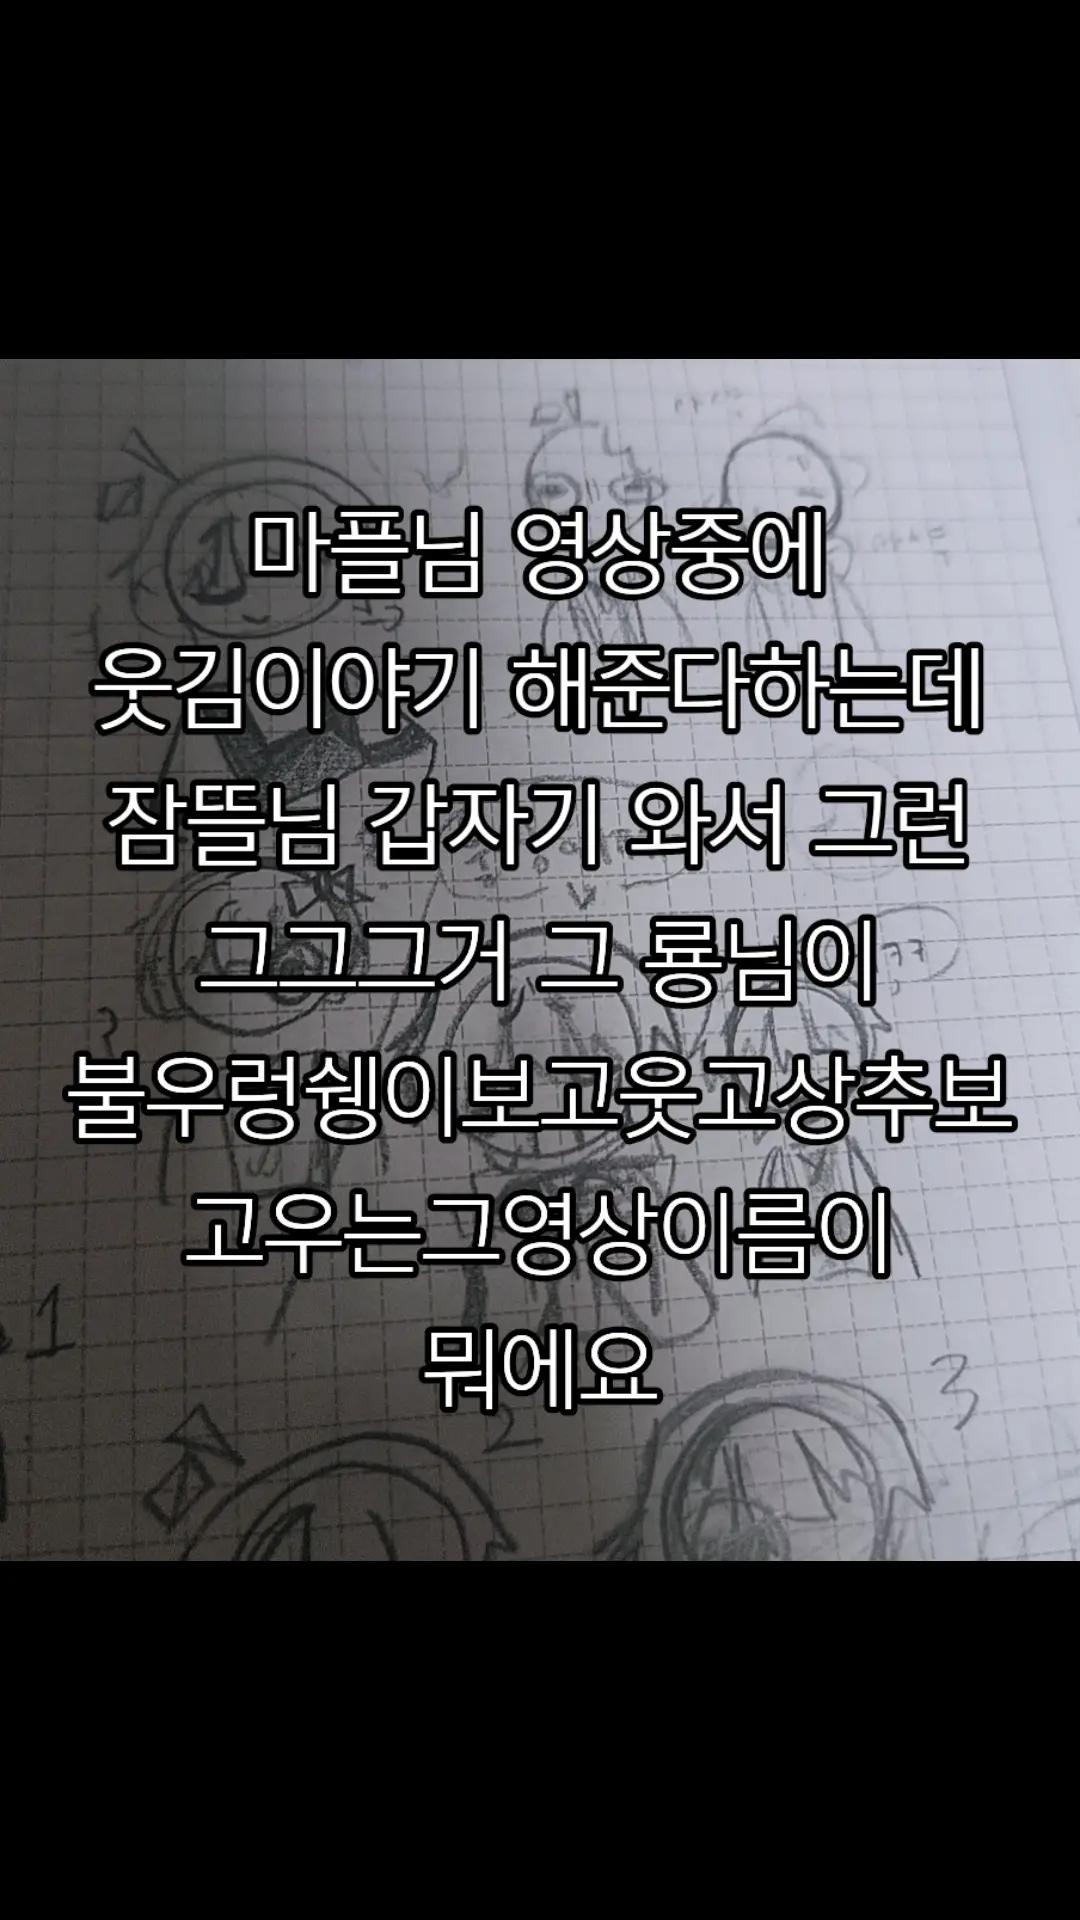 마플님 영상중에
웃김이야기 해준다하는데
잠뜰님 갑자기 와서 그런
그그그거 그 룡님이
불우렁쉥이보고웃고상추보
고우는그영상이름이
뭐에요
ㅋㅋ
?
1
2
3